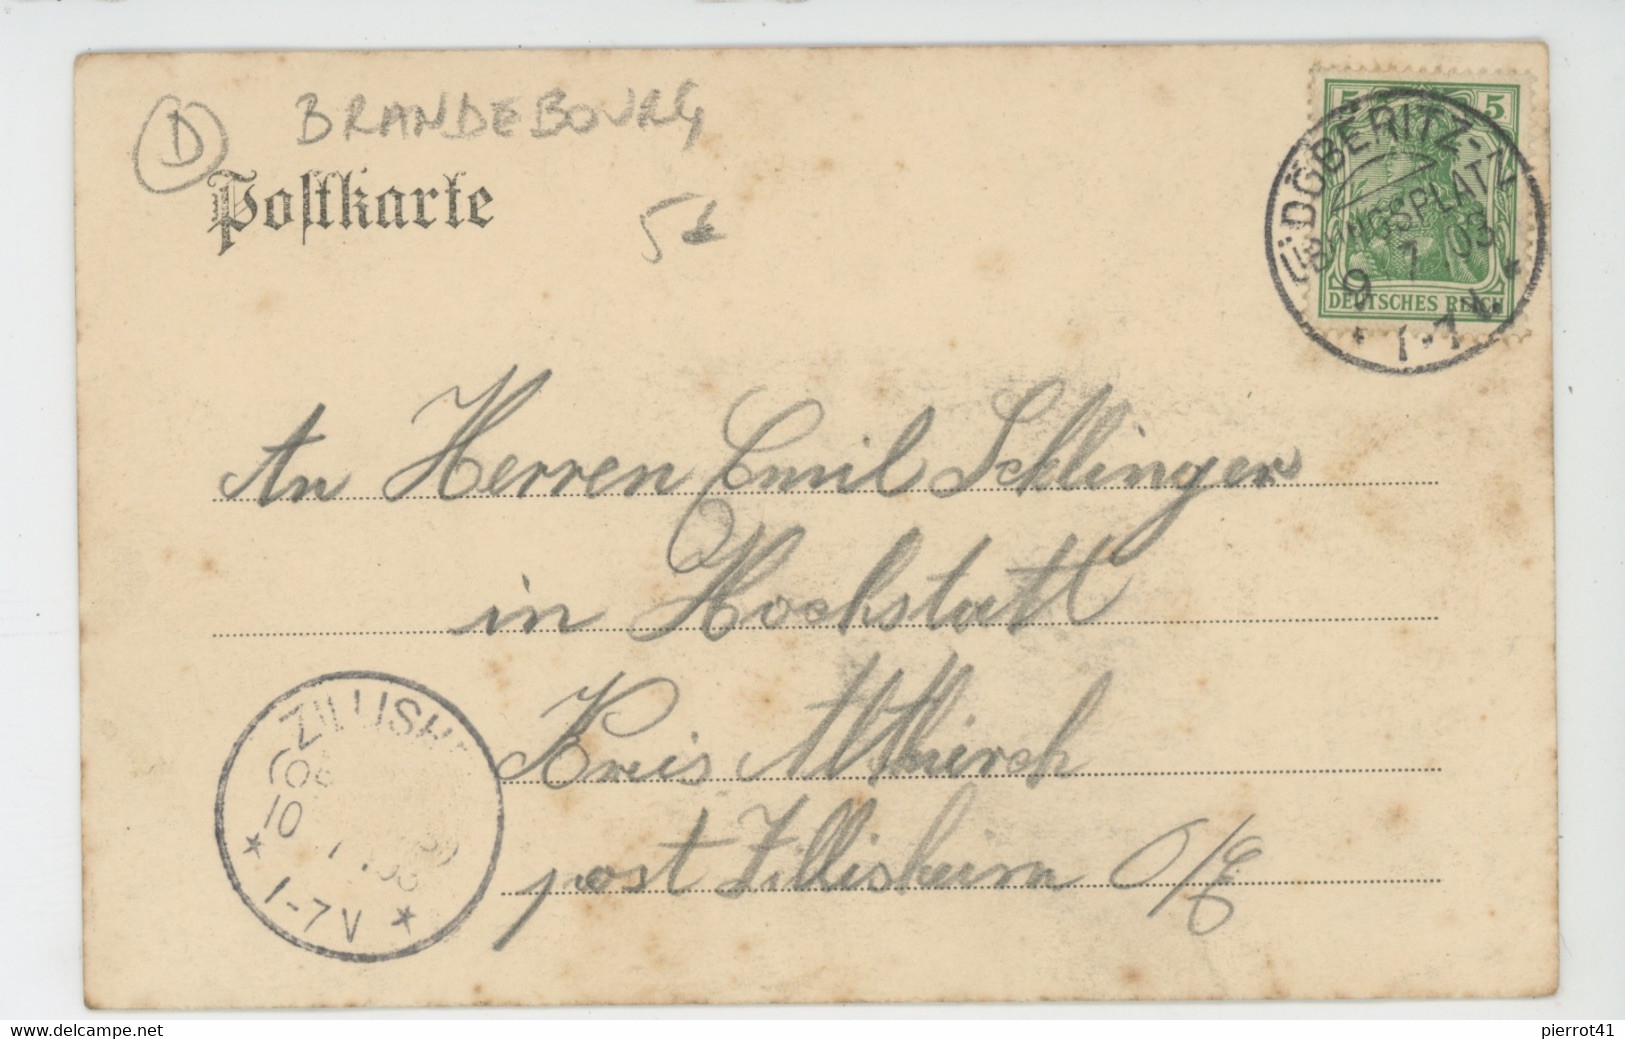 D BRANDEBOURG
Postkarte
5€
5 5
DÖBERITZ
ÜBUNGSPLATZ
9 7.03
1-7V
DEUTSCHES REICH
An Herren Emil Schlinger
in Hochstatt
Kreis Altkirch
post Zillisheim O/E
ZILLISH
10 7.03
1-7V
www.delcampe.net
pierrot41